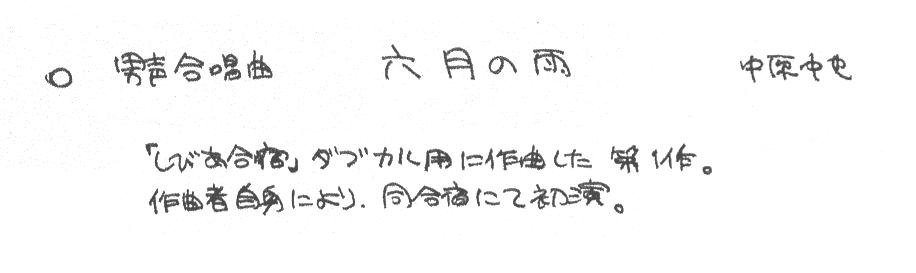 ○ 男声合唱曲 六月の雨 中原中也
「しびあ合宿」ダブカル用に作曲した 第1作。
作曲者自身により、同合宿にて初演。